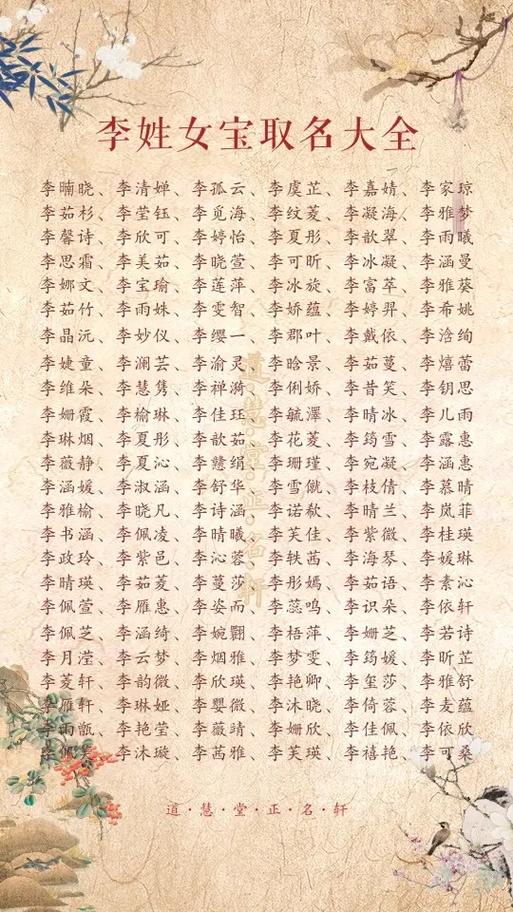 李姓女宝取名大全
李喃晓、李清婵、李孤云、李虞芷、李嘉婧、李家琼
李茹杉、李莹钰、李觅海、李纹菱、李凝海、李雅梦
李馨诗、李欣可、李婷怡、李夏彤、李歆翠、李雨曦
李思霜、李美茹、李晓萱、李可昕、李冰凝、李涵曼
李娜文、李宝瑜、李莲萍、李冰旋、李富萃、李雅葵
李茹竹、李雨姝、李雯智、李娇蕴、李婷羿、李希姚
李晶沅、李妙仪、李缨一、李郡叶、李戴依、李浛绚
李婕童、李澜芸、李渝灵、李晗景、李茹蔓、李熺蕾
李维朵、李慧隽、李禅漪、李俐娇、李昔笑、李钥思
李姗霞、李榆琳、李佳珏、李毓澤、李晴冰、李儿雨
李琳烟、李夏彤、李歆茹、李花菱、李筠雪、李露惠
李薇静、李夏沁、李戆绢、李珊瑾、李宛凝、李涵惠
李涵媛、李淑涵、李舒华、李雪僦、李枝倩、李慕晴
李雅榆、李晓凡、李诗涵、李诺欷、李晴兰、李岚菲
李书涵、李佩凌、李晴曦、李芙佳、李紫微、李桂瑛
李政玲、李紫邑、李沁蓉、李轶茜、李海琴、李媛琳
李晴瑛、李茹菱、李蔓莎、李彤嫣、李茹语、李素沁
李佩萱、李雁惠、李姿而、李蕊鸣、李识朵、李依轩
李佩芝、李涵绮、李婉翾、李梧萍、李姗芝、李若诗
李月滢、李云梦、李烟雅、李梦雯、李筠媛、李昕芷
李菱轩、李韵微、李欣瑛、李艳卿、李玺莎、李雅舒
李雁轩、李琳娅、李婴微、李沐晓、李倚蓉、李麦蕴
李雨甑、李艳莹、李薇靖、李姗欣、李佳佩、李依欣
李佩、李沐璇、李茜雅、李芙瑛、李禧艳、李可桑
道·慧·堂·正·名·轩